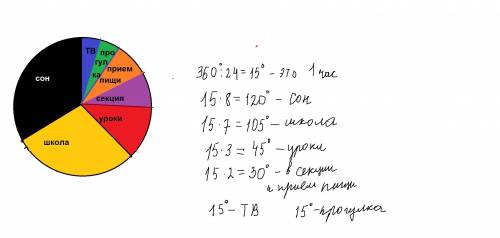 ТВ
про
гул
ка
прием
пищи
секция
уроки
школа
сон
360°:24=15° - это 1 час
15·8=120° - сон
15·7=105° - школа
15·3=45° - уроки
15·2=30° - в секции
и прием пищи
15° - ТВ 15° - прогулка